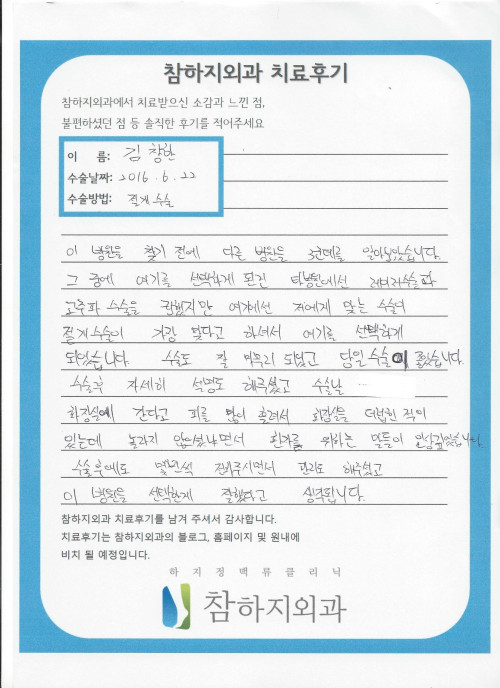 참하지외과 치료후기
참하지외과에서 치료받으신 소감과 느낀 점,
불편하셨던 점 등 솔직한 후기를 적어주세요
이 름: 김창한
수술날짜: 2016.6.22
수술방법: 절개수술
이 병원을 찾기 전에 다른 병원을 3군데를 알아보았습니다.
그 중에 여기를 선택하게 된건 타병원에선 레이저수술과
고주파 수술을 권했지만 여기에선 저에게 맞는 수술이
절개수술이 가장 맞다고 하셔서 여기를 선택하게
되었습니다. 수술도 잘 마무리 되었고 당일 수술이 좋았습니다.
수술후 자세히 설명도 해주셨고 수술날
화장실에 간다고 피를 많이 흘려서 화장실을 더럽힌 적이
있는데 놀라지 않으셨냐면서 환자를 위하는 말들이 인상깊었습니다.
수술후에도 몇번씩 전화주시면서 관리도 해주셨고
이 병원을 선택한게 잘했다고 생각됩니다.
참하지외과 치료후기를 남겨 주셔서 감사합니다.
치료후기는 참하지외과의 블로그, 홈페이지 및 원내에
비치 될 예정입니다.
하지정맥류클리닉
참하지외과